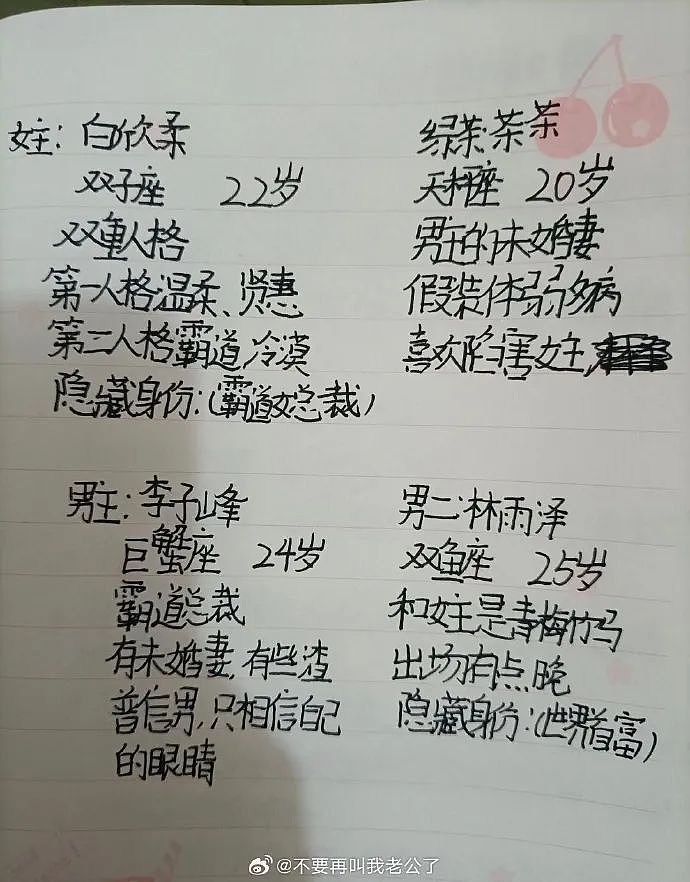 女主：白欣柔
双子座 22岁
双重人格
第一人格温柔、贤惠
第二人格霸道,冷漠
隐藏身份:(霸道女总裁)
绿茶:茶茶
天秤座 20岁
男主的未婚妻
假装体弱多病
喜欢陷害女主,
男主:李子峰
巨蟹座 24岁
霸道总裁
有未婚妻,有些渣
普信男,只相信自己
的眼睛
男二:林雨泽
双鱼座 25岁
和女主是青梅竹马
出场有点晚
隐藏身份:(世界首富)
@不要再叫我老公了